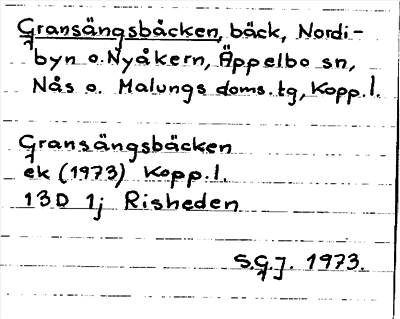 Gransängsbäcken, bäck, Nordi-
byn o. Nyåkern, Äppelbo sn,
Nås o. Malungs doms. tg, Kopp. l.
Gransängsbäcken
ek (1973) Kopp. l.
13D 1j Risheden
S.G.J. 1973.